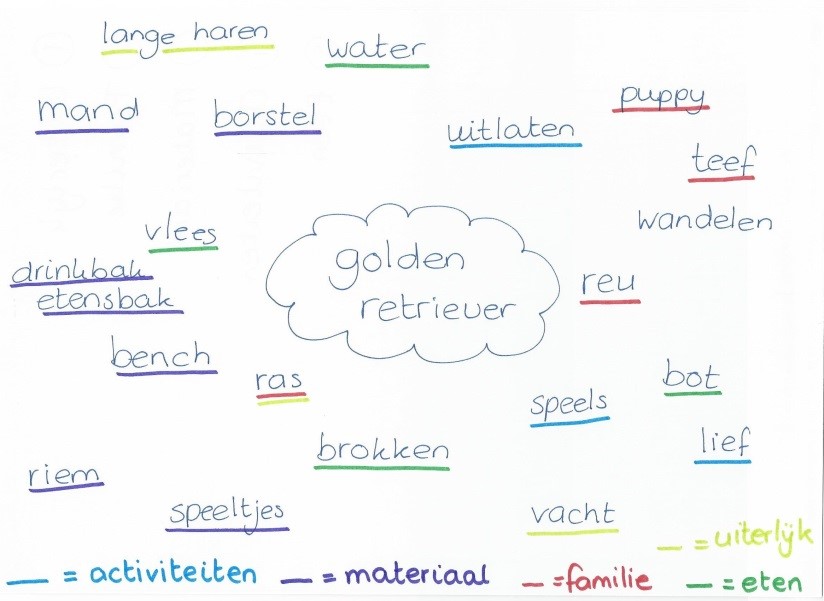 lange haren
water
puppy
mand
borstel
uitlaten
teef
wandelen
vlees
golden
retriever
drinkbak
etensbak
reu
bench
ras
bot
speels
lief
brokken
riem
speeltjes
vacht
= uiterlijk
= activiteiten
= materiaal
= familie
= eten